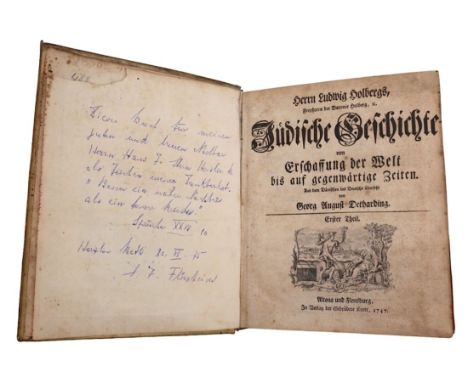 Dieses Buch für meinen
guten und treuen Nachbar
Herrn Hans J.
als Zeichen meiner Dankbarkeit.
"Besser ein naher Nachbar
als ein ferner Bruder."
Sprüche XXVII 10
Herrn Ludwig Holbergs,
Freyherrn der Baronie Holberg, ꝛc.
Jüdische Geschichte
von
Erschaffung der Welt
bis auf gegenwärtige Zeiten.
Aus dem Dänischen ins Deutsche übersetzt
von
Georg August Detharding.
Erster Theil.
Altona und Flensburg,
Im Verlag der Gebrüdere Korte, 1747.